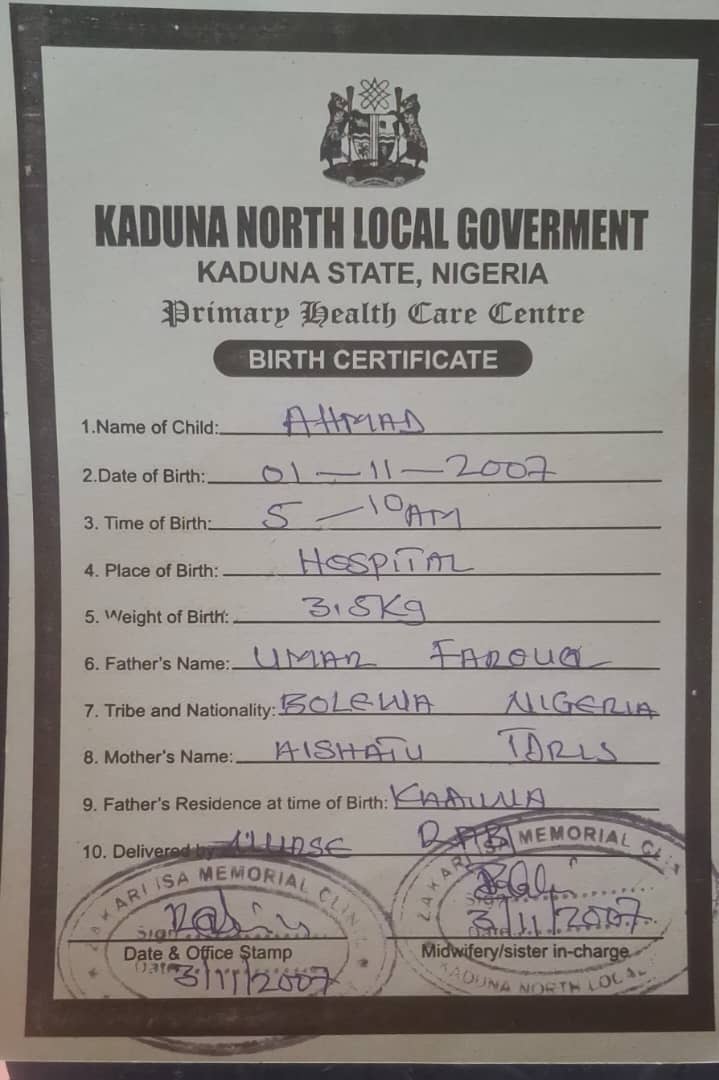 KADUNA NORTH LOCAL GOVERMENT
KADUNA STATE, NIGERIA
Primary Health Care Centre
BIRTH CERTIFICATE
1.Name of Child: AHMAD
2.Date of Birth: 01 - 11 - 2007
3. Time of Birth: 5 - 10 AM
4. Place of Birth: HOSPITAL
5. Weight of Birth: 3.5Kg
6. Father's Name: UMAR FAROUQ
7. Tribe and Nationality: BOLEWA NIGERIA
8. Mother's Name: AISHATU IDRIS
9. Father's Residence at time of Birth: KADUNA
10. Delivered by NURSE RABI
LAKARI ISA MEMORIAL CLINIC
Sign
Date & Office Stamp
Date 3/11/2007
LAKARI ISA MEMORIAL CLI
Sign
Date 3/11/2007
Midwifery/sister in-charge
KADUNA NORTH LOCAL